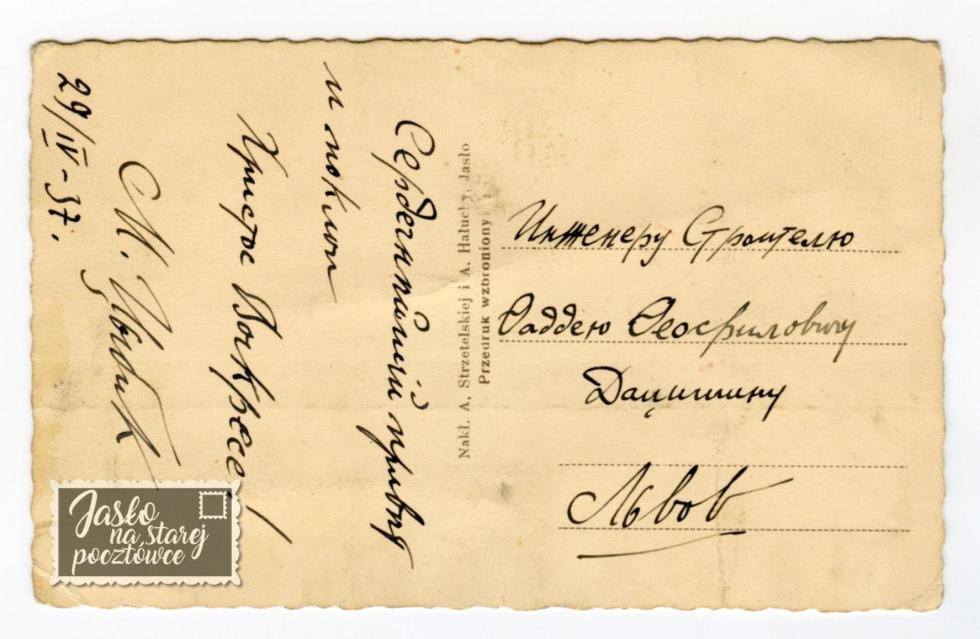 Сердечнѣйшій привѣт
и поклон
Христос Воскресе!
М.
29/IV-37.
Nakł. A. Strzetelskiej i A. Hałuchy, Jasło
Przedruk wzbroniony
Инженеру Строителю
Фаддею Феофиловичу
Дацишину
Львов
Jasło
na starej
pocztówce